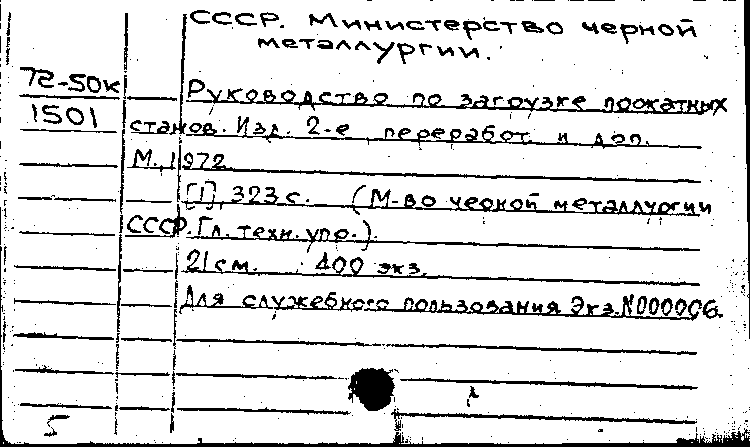 СССР. Министерство черной
металлургии.
72-50к
Руководство по загрузке прокатных
1501
станов. Изд. 2-е, переработ. и доп.
М., 1972
[1], 323 с. (М-во черной металлургии
СССР. Гл. техн. упр.).
21 см. 400 экз.
Для служебного пользования Экз. N000006.
5